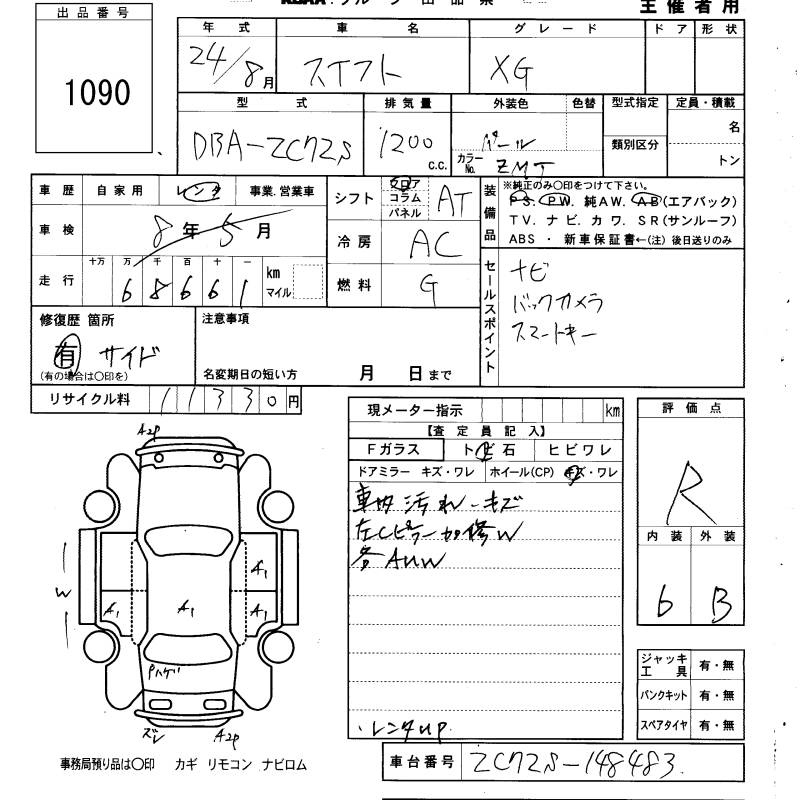 出品番号
1090
主催者用
年式 車名 グレード ドア 形状
24/8月 スイフト XG
型式 排気量 外装色 色替 型式指定 定員・積載
DBA-ZC72S 1200 c.c. パール
カラーNo. ZMT
類別区分
名
トン
車歴 自家用 レンタ 事業.営業車
車検 8年5月
走行 十万 万 千 百 十 一
6 8 6 6 1 km
マイル
シフト フロア コラム パネル AT
冷房 AC
燃料 G
装備品 ※純正のみ〇印をつけて下さい。
PS. PW. 純AW. AB(エアバック)
TV. ナビ. カワ. SR(サンルーフ)
ABS ・ 新車保証書←(注) 後日送りのみ
セールスポイント
ナビ
バックカメラ
スマートキー
修復歴 箇所
有 サイド
(有の場合は〇印を)
注意事項
名変期日の短い方 月 日まで
リサイクル料 11330円
現メーター指示 km
【査定員記入】
Fガラス トビ石 ヒビワレ
ドアミラー キズ・ワレ ホイール(CP) キズ・ワレ
車内汚れ-キズ
左Cピラー加修W
各AUW
・レンタup.
評価点
R
内装 外装
6 B
ジャッキ工具 有・無
パンクキット 有・無
スペアタイヤ 有・無
A2P
W
A1
A1 A1 A1
Pハゲ
ズレ A2P
事務局預り品は〇印 カギ リモコン ナビロム
車台番号 ZC72S-148483.